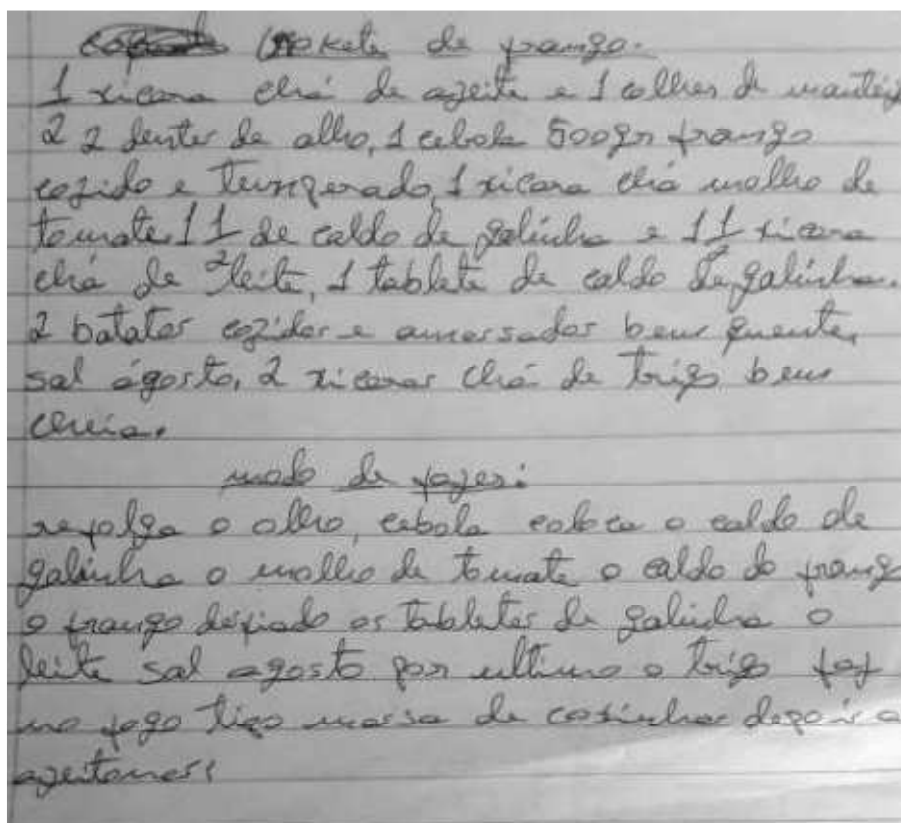 Crokete de frango.
1 xicara chá de azeite e 1 colher de manteig
2 2 dentes de alho, 1 cebola 500gr frango
cozido e temperado, 1 xicara chá molho de
tomate, 1 1 de caldo de galinha e 1 1/2 xicara
chá de leite, 1 tablete de caldo de galinha.
2 batatas cozidas e amassadas bem quente,
sal ágosto, 2 xicaras chá de trigo bem
cheia.
modo de fazer:
refolga o alho, cebola coloca o caldo de
galinha o molho de tomate o caldo do frang
o frango desfiado os tabletes de galinha o
leite sal agosto por ultimo o trigo faz
no fogo tipo massa de coxinhas depois a
azeitonas: